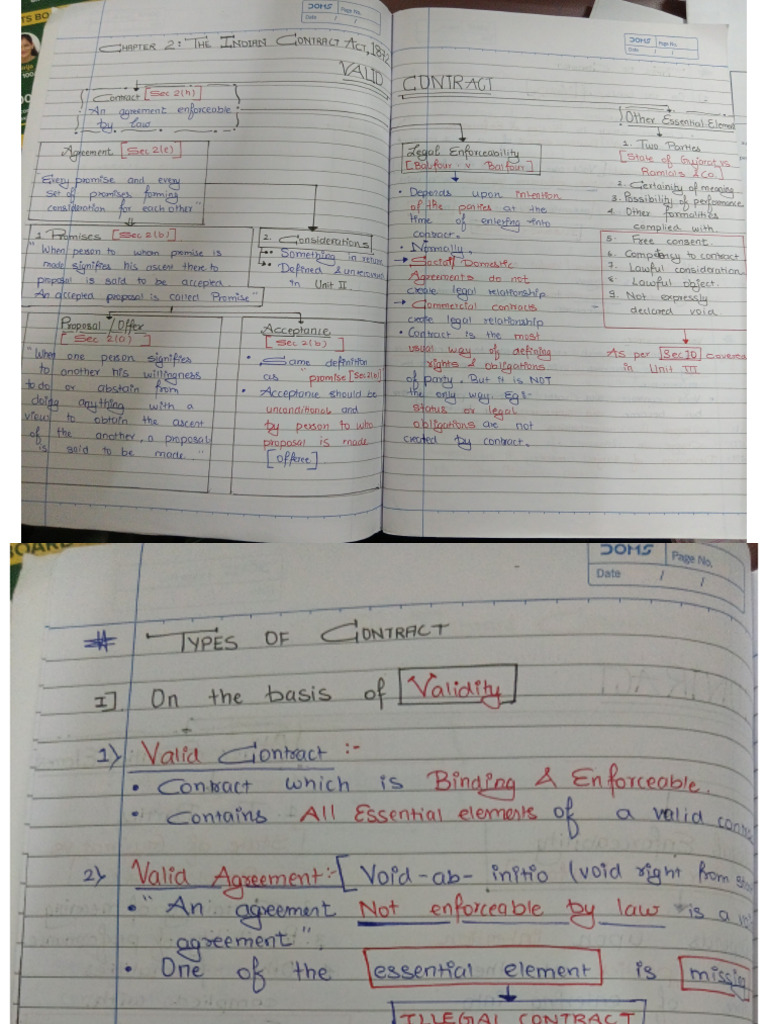 DOMS
Page No.
Date / /
CHAPTER 2: THE INDIAN CONTRACT ACT, 1872
VALID
Contract [Sec 2(h)]
An agreement enforceable
by law
Agreement [Sec 2(e)]
"Every promise and every
set of promises, forming
consideration for each other"
1. Promises [Sec 2(b)]
"When person to whom promise is
made signifies his ascent there to
proposal is said to be accepted.
An accepted proposal is called Promise"
2. Considerations
Something in return
Defined &
in Unit II
Proposal / Offer
[Sec 2(a)]
"When one person signifies
to another his willingness
to do or abstain from
doing anything with a
view to obtain the ascent
of the another, a proposal
is said to be made."
Acceptance
[Sec 2(b)]
• Same definition
as "promise [Sec 2(b)]
• Acceptance should be
unconditional and
by person to who
proposal is made
[Offeree]
DOMS
Page No.
Date / /
CONTRACT
Legal Enforceability
[Balfour v Balfour]
• Depends upon intention
of the parties at the
time of entering into
contract.
• Normally,
→ Social / Domestic
Agreements do not
create legal relationship
→ Commercial contracts
create legal relationship
• Contract is the most
usual way of defining
rights & obligations
of party. But it is NOT
the only way. Egs-
status or legal
obligations are not
created by contract.
Other Essential Element
1. Two Parties
[State of Gujarat vs
Ramlals & Co.]
2. Certainity of meaning
3. Possibility of performance
4. Other formalities
complied with
5. Free consent
6. Compency to contract
7. Lawful consideration
8. Lawful object.
9. Not expressly
declared void
As per [Sec 10] Covered
in Unit III
BOARD
DOMS
Page No.
Date / /
# TYPES OF CONTRACT
I] On the basis of Validity
1) Valid Contract :-
• Contract which is Binding & Enforceable.
• Contains All Essential elements of a valid
2) Valid Agreement:- [Void-ab-initio (void right from
• "An agreement Not enforceable by law is a
agreement".
• One of the essential element is missing
ILLEGAL CONTRACT